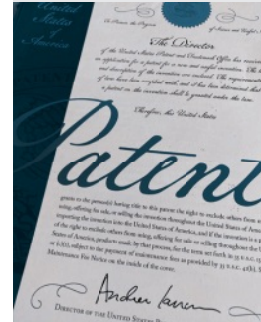 United
States
of
America
To Promote the Progress
of Science and Useful
The Director
of the United States Patent and Trademark Office has received
an application for a patent for a new and useful invention. The
and description of the invention are enclosed. The requirements
of law have been complied with, and it has been determined that
a patent on the invention shall be granted under the law.
Therefore, this United States
Patent
grants to the person(s) having title to this patent the right to exclude others from
using, offering for sale, or selling the invention throughout the United States of
importing the invention into the United States of America, and if the invention is a
of the right to exclude others from using, offering for sale or selling throughout the
States of America, products made by that process, for the term set forth in 35 U.S.C.
subject to the payment of maintenance fees as provided by 35 U.S.C.
Maintenance Fee Notice on the inside of the cover.
Director of the United States